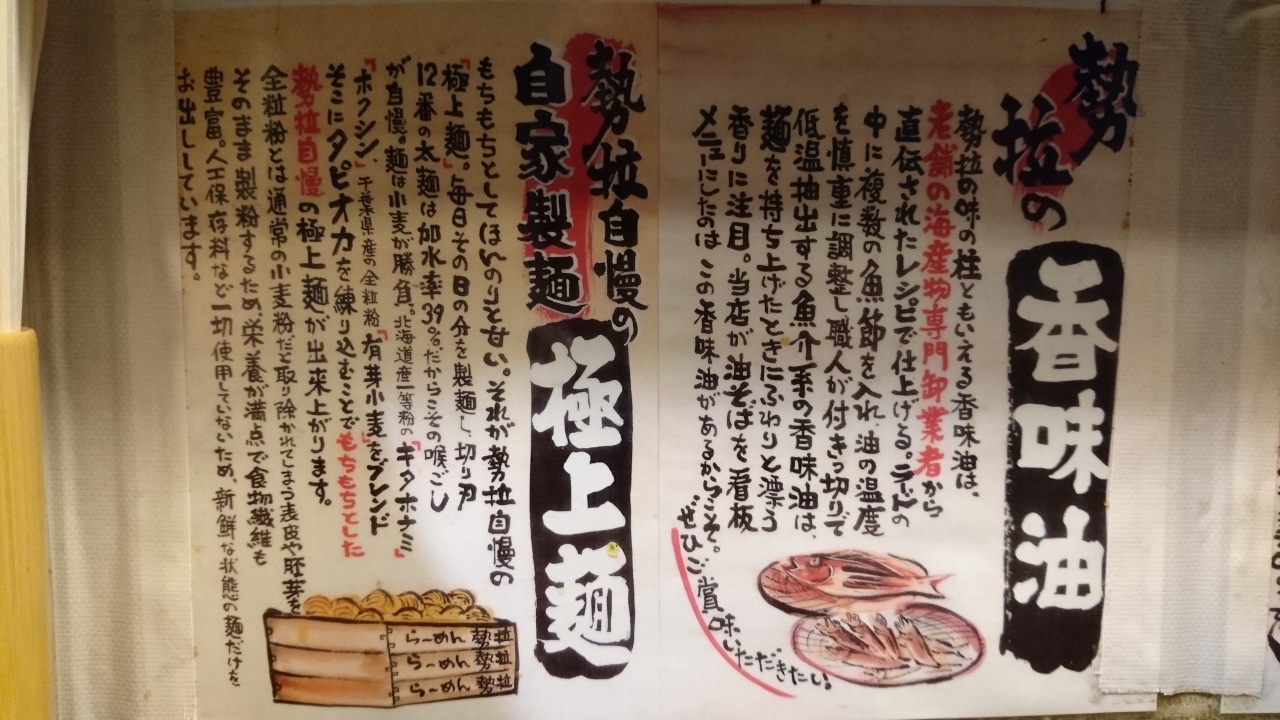 勢
拉の
香味油
勢拉の味の柱ともいえる香味油は、
老舗の海産物専門卸業者から
直伝されたレシピで仕上げる。ラードの
中に複数の魚節を入れ、油の温度
を慎重に調整し職人が付きっ切りで
低温抽出する魚介系の香味油は、
麺を持ち上げたときにふわりと漂う
香りに注目。当店が油そばを看板
メニューにしたのは この香味油があるからこそ。
ぜひご賞味いただきたい!
勢拉自慢の
自家製麺
極上麺
もちもちとしてほんのりと甘い。それが勢拉自慢の
「極上麺」。毎日その日の分を製麺し、切り刃
12番の太麺は加水率39%。だからこその喉ごし
が自慢。麺は小麦が勝負。北海道産一等粉の「キタホナミ」
「ホクシン」、千葉県産の全粒粉「有芽小麦」をブレンド
そこにタピオカを練り込むことでもちもちとした
勢拉自慢の極上麺が出来上がります。
全粒粉とは通常の小麦粉だと取り除かれてしまう表皮や胚芽を
そのまま製粉するため、栄養が満点で食物繊維も
豊富。人工保存料など一切使用していないため、新鮮な状態の麺だけを
お出ししています。
らーめん 勢拉
らーめん 勢拉
らーめん 勢拉